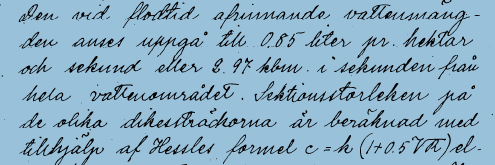 Den vid flodtid afrinnande vattenmäng-
den anses uppgå till 0.85 liter pr. hektar
och sekund eller 2.97 kbm. i sekunden från
hela vattenområdet. Sektionsstorleken på
de olika dikessträckorna är beräknad med
tillhjälp af Hessles formel c = k (1+0.5√π) el-